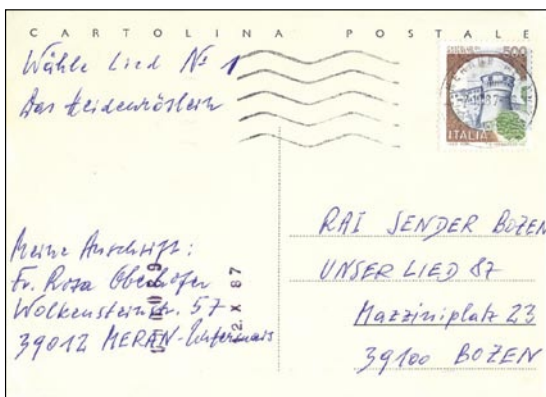 CARTOLINA POSTALE
Wähle Lied No 1
Das Heidenröslein
500
ITALIA
Meine Anschrift:
Fr. Rosa Oberhofer
Wolkensteinstr. 57
39012 MERAN-Untermais
2 X 87
RAI SENDER BOZEN
UNSER LIED 87
Mazziniplatz 23
39100 BOZEN